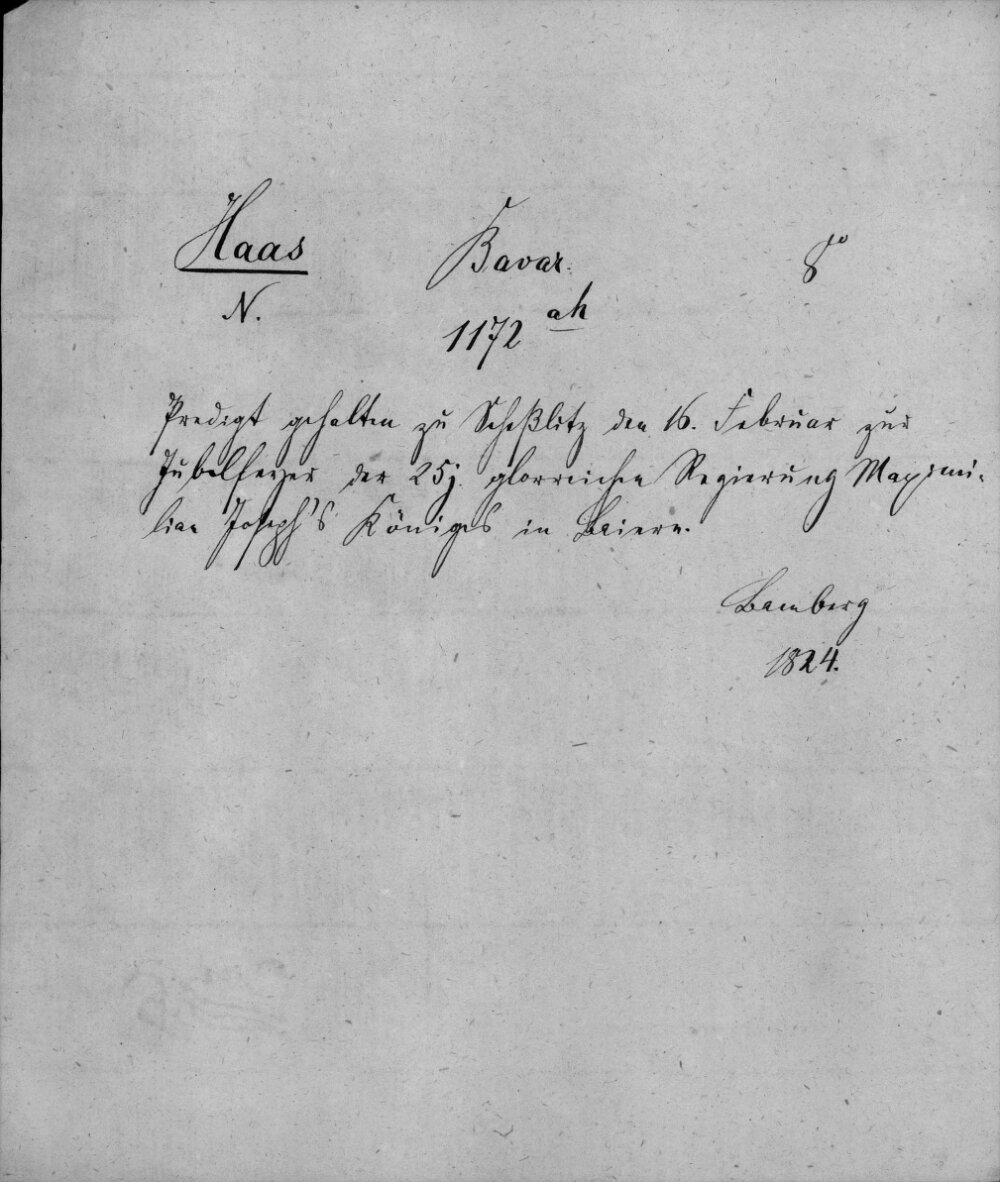 Haas Bavar. 8°
N. 1172 ah
Predigt gehalten zu Scheßlitz den 16. Februar zur
Jubelfeyer der 25j. glorreichen Regierung Maximi-
lian Joseph's Königes in Baiern.
Bamberg
1824.